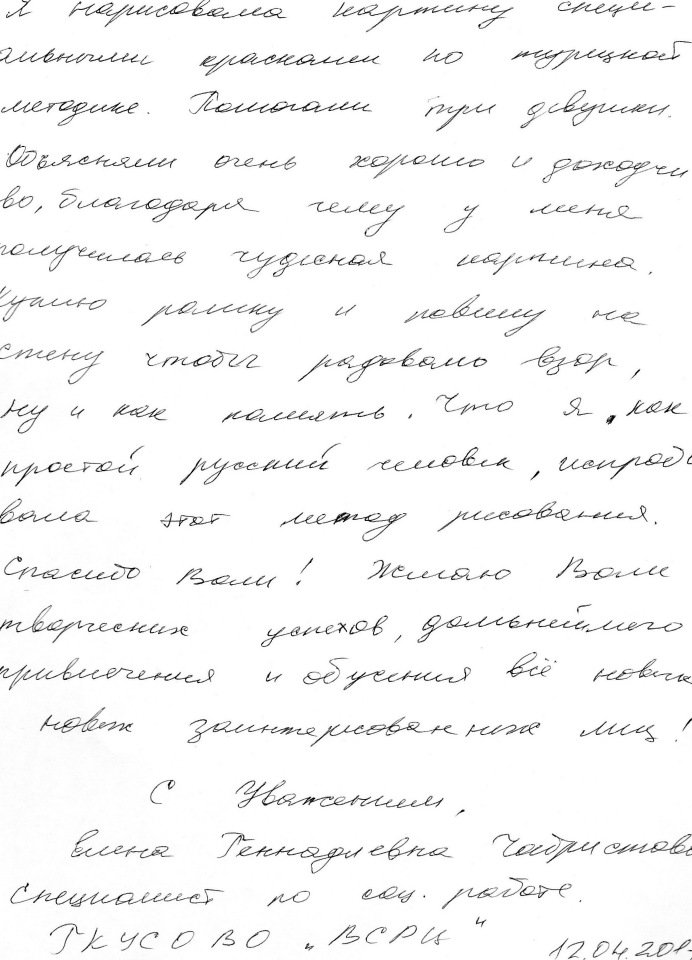 Я нарисовала картину специ-
альными красками по турецкой
методике. Помогали три девушки.
Объясняли очень хорошо и доходчи
во, благодаря чему у меня
получилась чудесная картина.
Куплю рамку и повешу на
стену чтобы радовало взор,
ну и как память. Что я, как
простой русский человек, испробо
вала этот метод рисования.
Спасибо Вам! Желаю Вам
творческих успехов, дальнейшего
привлечения и обучения всё новых
новых заинтерисованных лиц!
С Уважением,
Елена Геннадиевна
Специалист по соц. работе.
ГКУСОВО „ВСРЦ"
12.04.201